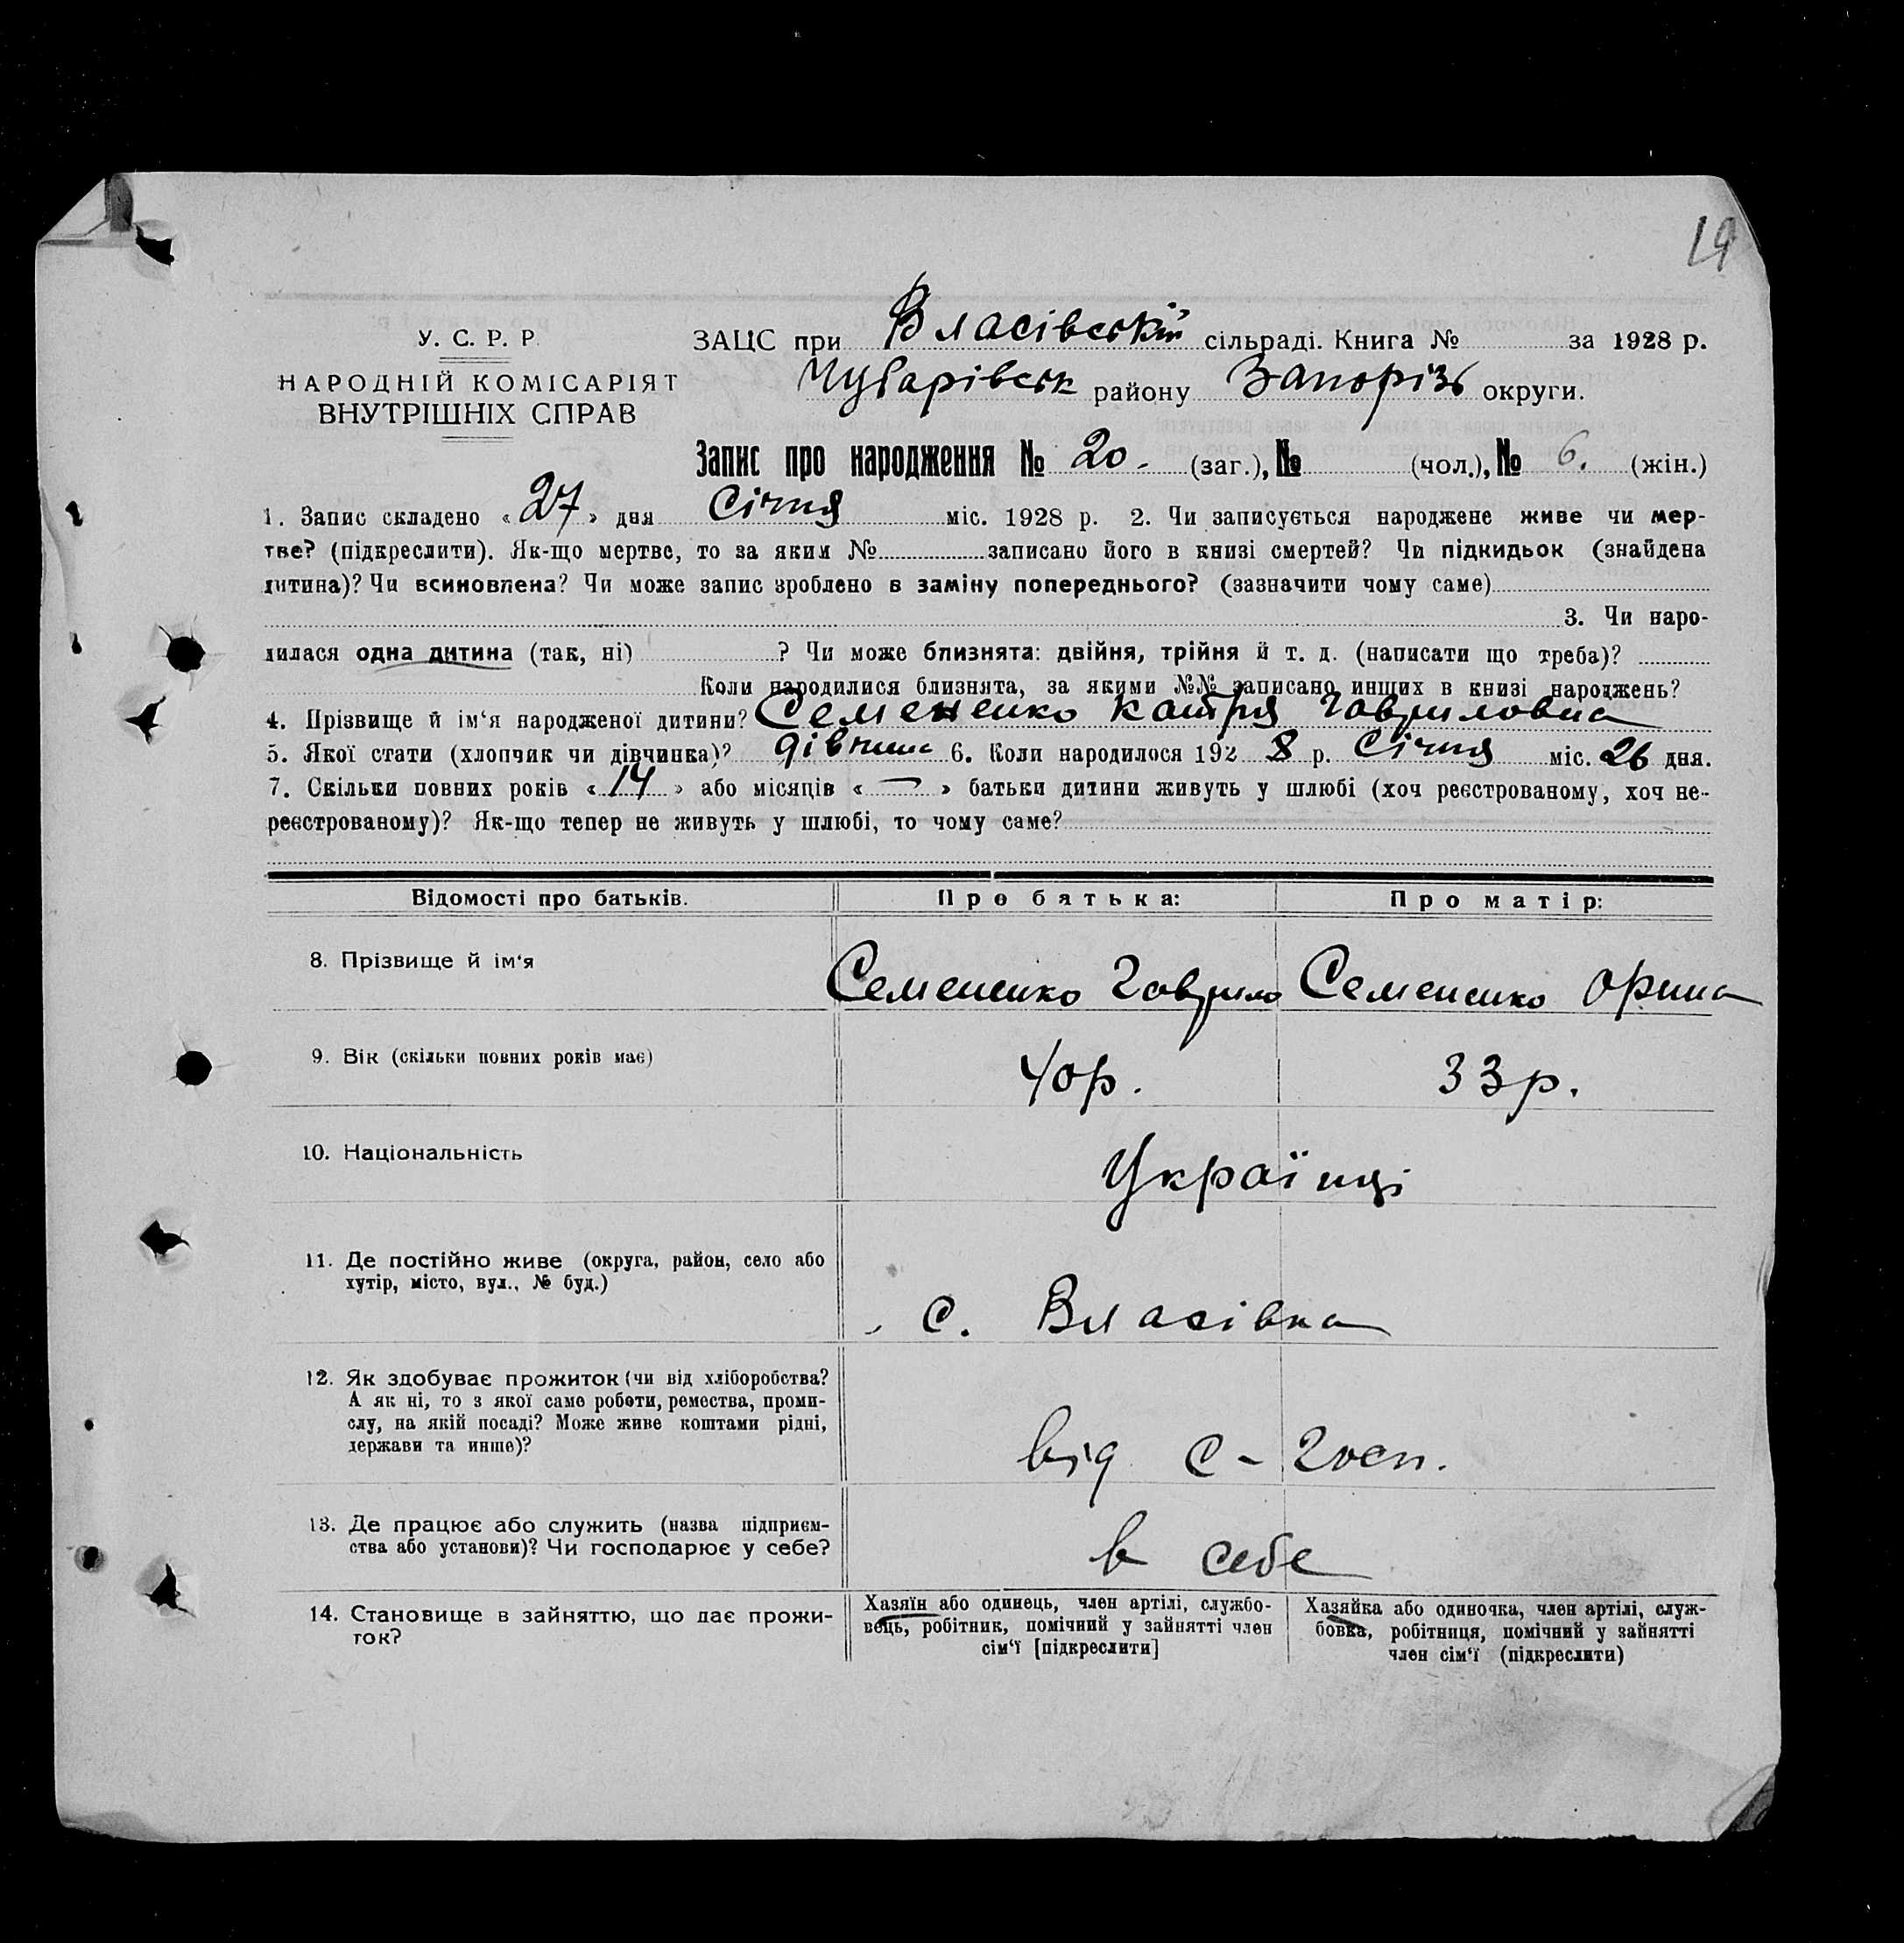 19
У. С. Р. Р.
НАРОДНІЙ КОМІСАРІЯТ
ВНУТРІШНІХ СПРАВ
ЗАЦС при Власівській сільраді. Книга № за 1928 р.
Чубарівськ району Запорізь округи.
Запис про народження № 20. (заг.), № (чол.), № 6. (жін.)
1. Запис складено « 27 » дня Січня міс. 1928 р. 2. Чи записується народжене живе чи мер-
тве? (підкреслити). Як-що мертве, то за яким № записано його в книзі смертей? Чи підкидьок (знайдена
дитина)? Чи всиновлена? Чи може запис зроблено в заміну попереднього? (зазначити чому саме)
3. Чи наро-
дилася одна дитина (так, ні) ? Чи може близнята: двійня, трійня й т. д. (написати що треба)?
Коли народилися близнята, за якими №№ записано инших в книзі народжень?
4. Прізвище й ім‘я народженої дитини? Семененко Катря Гавриловна
5. Якої стати (хлопчик чи дівчинка)? дівчина 6. Коли народилося 192 8 р. Січня міс. 26 дня.
7. Скільки повних років « 14 » або місяців « — » батьки дитини живуть у шлюбі (хоч реєстрованому, хоч не-
реєстрованому)? Як-що тепер не живуть у шлюбі, то чому саме?
Відомості про батьків. Про батька: Про матір:
8. Прізвище й ім‘я Семененко Гаврило Семененко Орина
9. Вік (скільки повних років має) 40 р. 33 р.
10. Національність Українці
11. Де постійно живе (округа, район, село або
хутір, місто, вул., № буд.)
с. Власівка
12. Як здобуває прожиток (чи від хліборобства?
А як ні, то з якої саме роботи, ремества, проми-
слу, на якій посаді? Може живе коштами рідні,
держави та инше)?
від с - госп.
13. Де працює або служить (назва підприєм-
ства або установи)? Чи господарює у себе?
в себе
14. Становище в зайняттю, що дає прожи-
ток?
Хазяїн або одинець, член артілі, службо-
вець, робітник, помічний у зайнятті член
сім‘ї [підкреслити]
Хазяйка або одиночка, член артілі, служ-
бовка, робітниця, помічний у зайнятті
член сім‘ї (підкреслити)